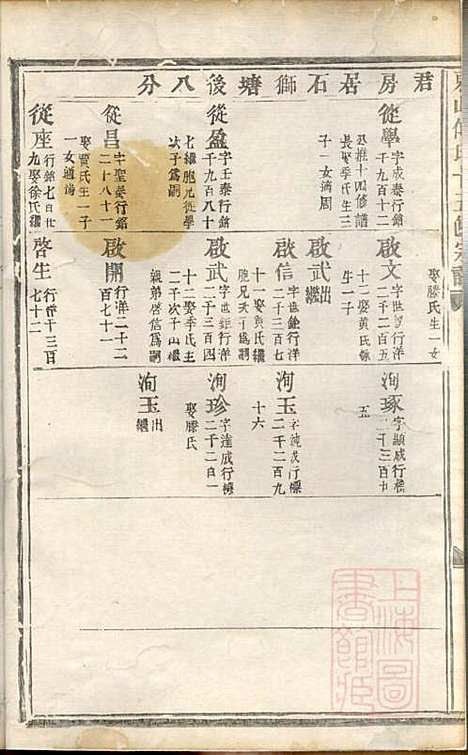 君房居石獅塘後八分
娶滕氏生一女
從學
字成泰行銘
千九百八十
丞推十四修譜
長娶季氏生三
子一女適周
從盈
字壬泰行銘
千九百八十
七繼胞兄從學
次子爲嗣
從昌
字聖泰行銘
二十八十一
娶賈氏生一子
一女適潘
從座
行銘七百廿
九娶徐氏繼
啟文
行洋
二千二百五
十二娶黄氏
生一子
啟武出繼
啟信
字世銓行洋
二千三百七
十一娶黄氏繼
胞兄次子爲嗣
啟武
字世鉅行洋
二千三百四
十三娶季氏生
二子次子出繼
親弟啓信爲嗣
啟開
行洋二十二
百七十一
啓生
行洋十三百
七十二
洵琢
字顯成行
五
洵玉
行標
二千二百九
十六
洵珍
字達成行標
二千二百一
娶滕氏
洵玉出繼
上海圖書館藏